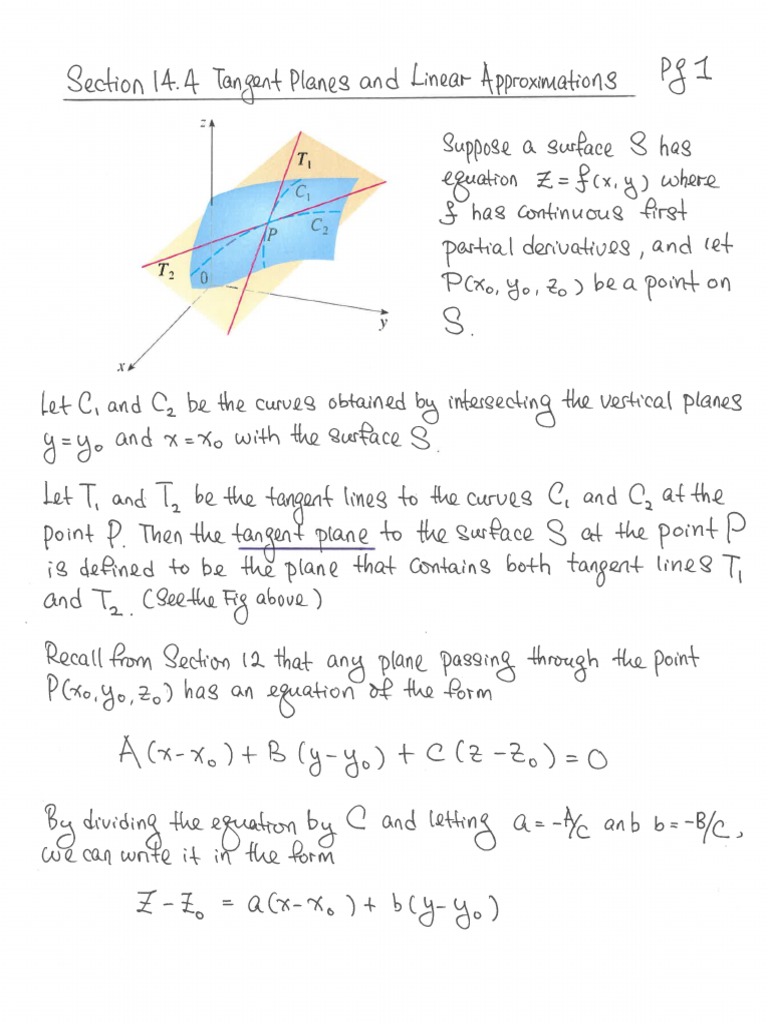 Section 14.4 Tangent Planes and Linear Approximations Pg 1
z
T₁
C₁
C₂
P
T₂
0
y
x
Suppose a surface S has
equation z = f(x, y) where
f has continuous first
partial derivatives, and let
P(x₀, y₀, z₀) be a point on
S.
Let C₁ and C₂ be the curves obtained by intersecting the vertical planes
y = y₀ and x = x₀ with the surface S.
Let T₁ and T₂ be the tangent lines to the curves C₁ and C₂ at the
point P. Then the tangent plane to the surface S at the point P
is defined to be the plane that contains both tangent lines T₁
and T₂. (See the Fig above)
Recall from Section 12 that any plane passing through the point
P(x₀, y₀, z₀) has an equation of the form
A(x-x₀) + B(y-y₀) + C(z-z₀) = 0
By dividing the equation by C and letting a = -A/C anb b = -B/C,
we can write it in the form
z - z₀ = a(x-x₀) + b(y-y₀)